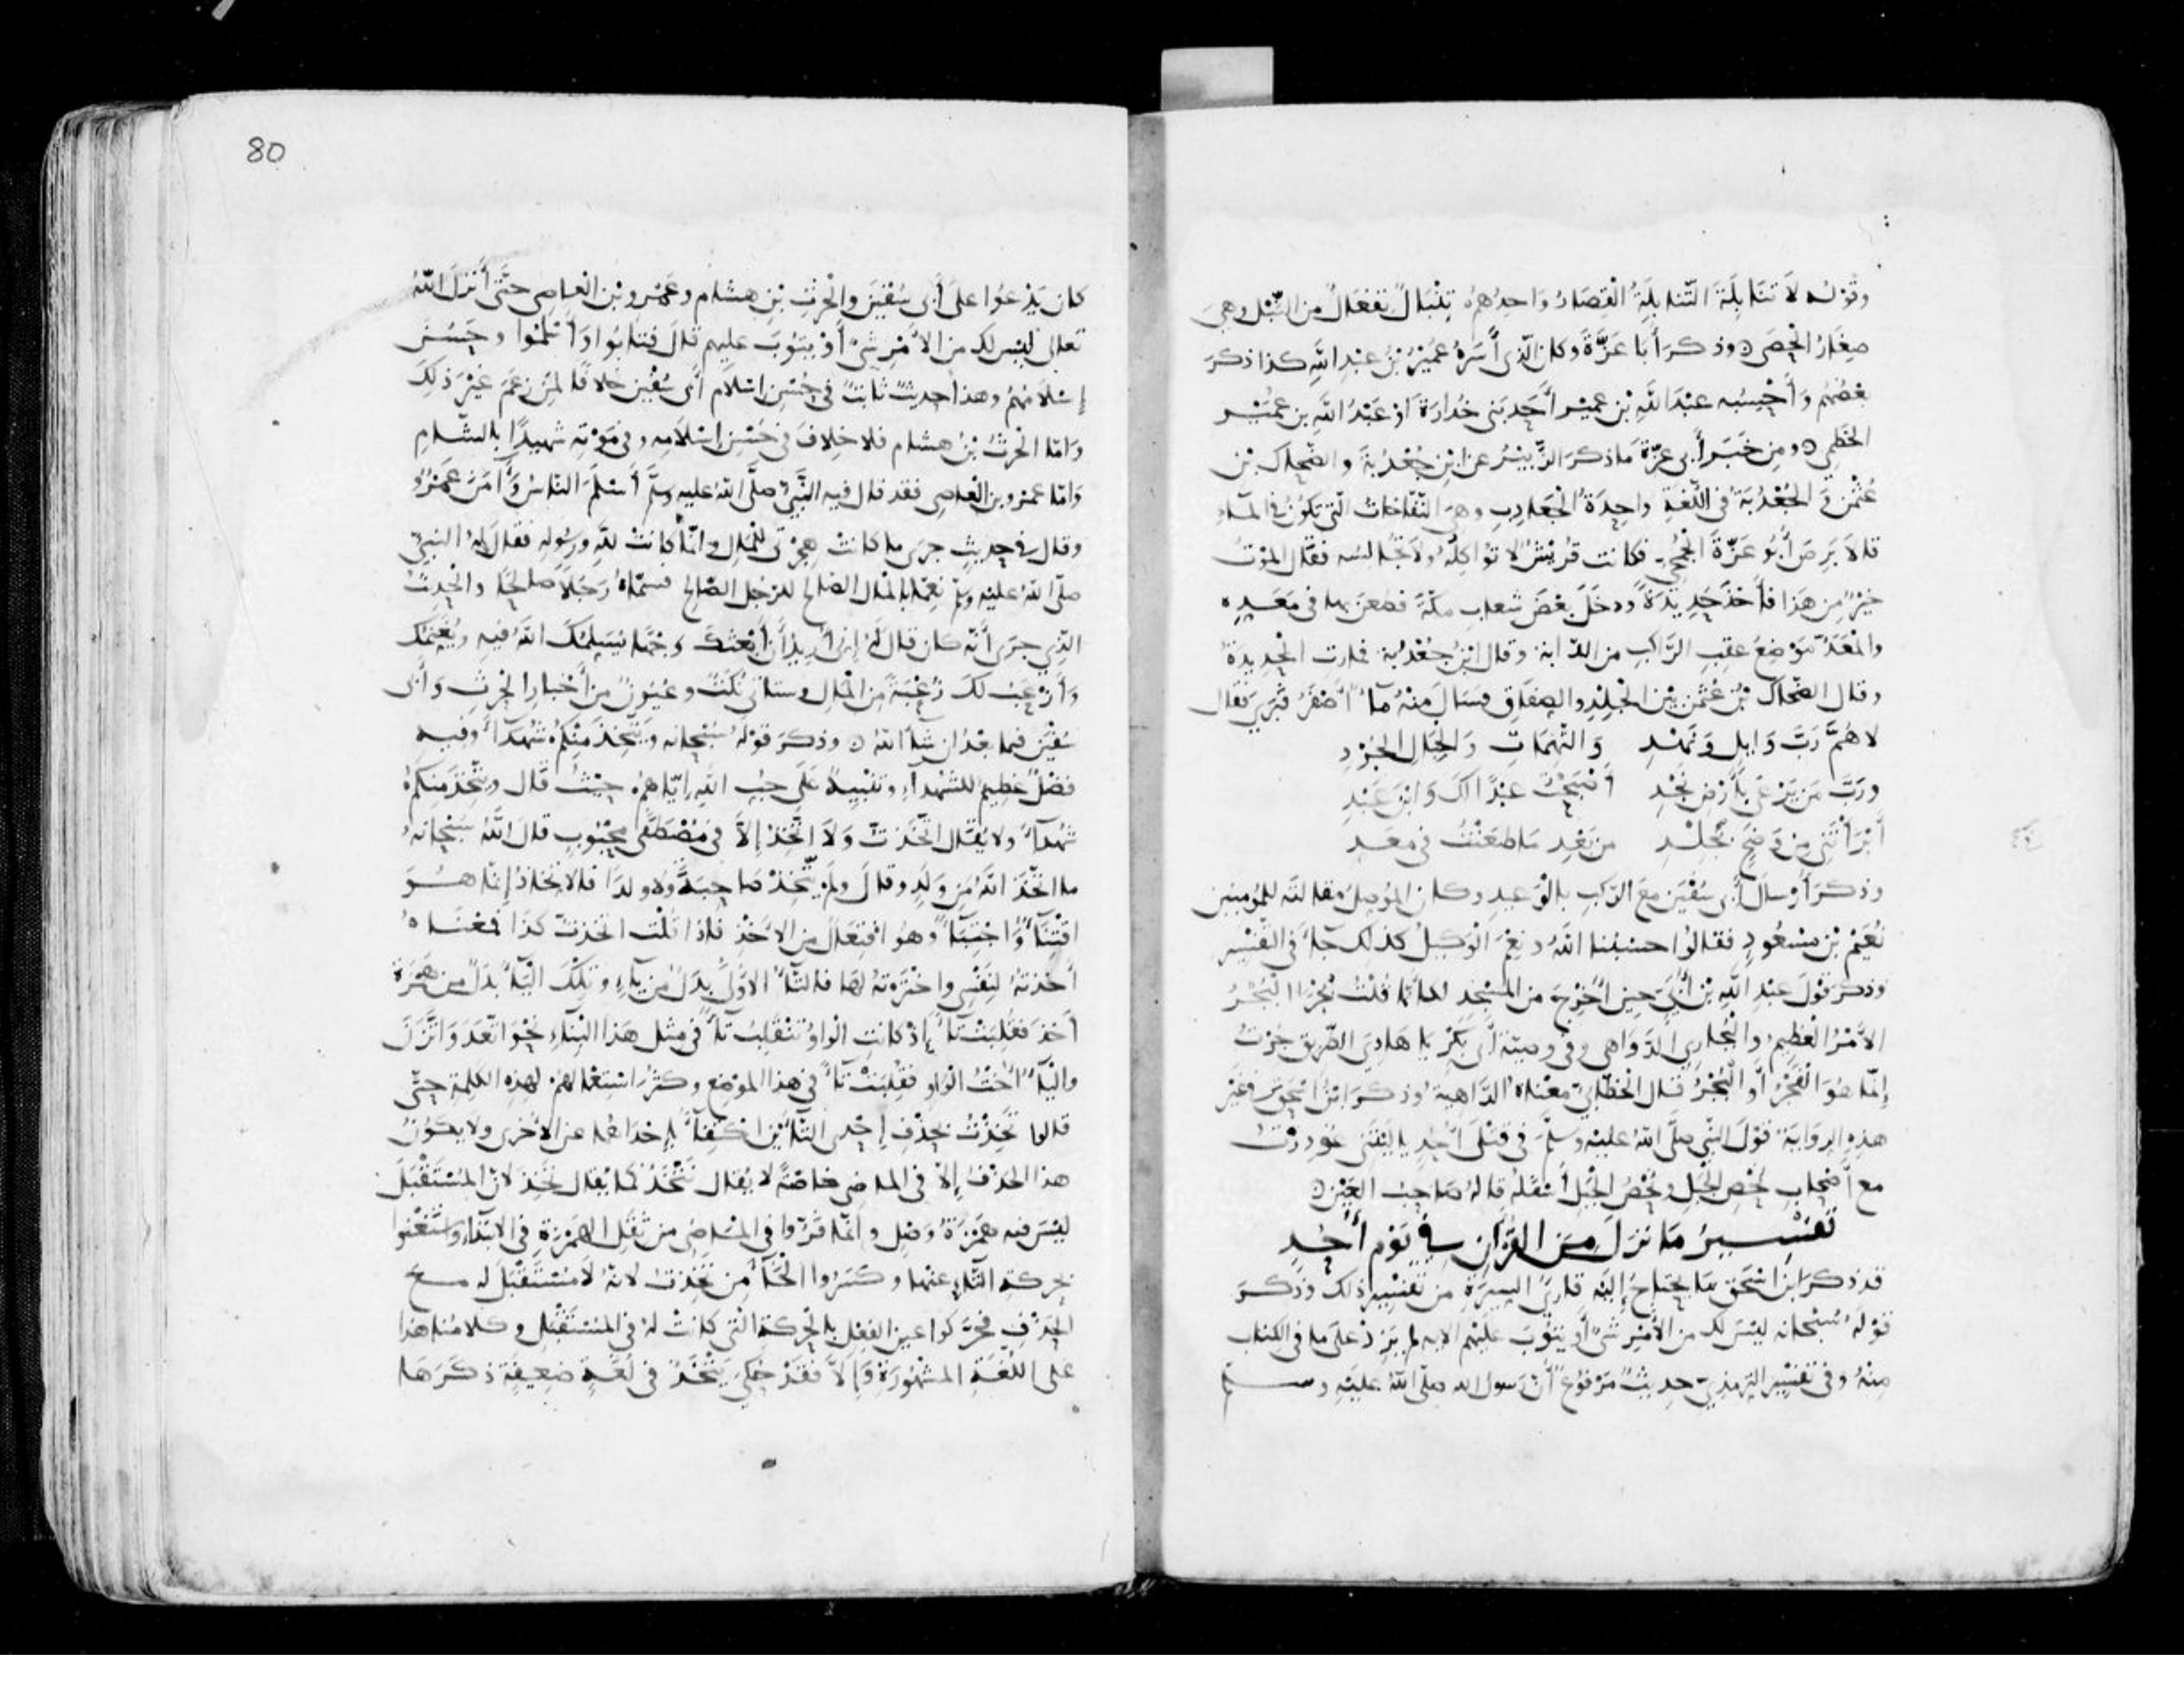 وقوله لا تنابلة التنابلة القصار واحدهم تنبال تفعال من النبل وهي
صغار الحصى وذكر أبا عزة وكان الذي أسره عمير بن عبد الله كذا ذكر
بعضهم وأحسبه عبد الله بن عمير أحد بني خدارة أو عبد الله بن عمير
الخطمي ومن خبر أبي عزة ما ذكر الزبير عن ابن جعدبة والضحاك بن
عثمن والجعدبة في اللغة واحدة الجعادب وهي النفاخات التي تكون في الماء
قالا برص أبو عزة الجمحي فكانت قريش لا تواكله ولا تجالسه فقال الموت
خير من هذا فأخذ حديدة ودخل بعض شعاب مكة فطعن بها في معده
والمعد موضع عقب الراكب من الدابة وقال ابن جعدبة فمارت الحديدة
وقال الضحاك بن عثمن بين الجلد والصفاق فسال منه ماء أصفر فبرئ فقال
لاهم رب وايل ونهد والتهمات والجبال الجرد
ورب من يرعى بأرض نجد أصبحت عبدا لك وابن عبد
أبرأتني من وضح بجلد من بعد ما طعنت في معد
وذكر أرسال أبي سفين مع الركب بالوعيد وكان الموصل مقالته للمومنين
نعيم بن مسعود فقالوا حسبنا الله ونعم الوكيل كذلك جاء في التفسير
وذكر قول عبد الله بن أبي حين أخرج من المسجد لكأنما قلت بجرا البجر
الأمر العظيم والبجاري الدواهي وفي وصية أبي بكر يا هادي الطريق جرت
إنما هو الفجر أو البجر قال الخطابي معناه الداهية وذكر ابن اسحق في غير
هذه الرواية قول النبي صلى الله عليه وسلم في قتلى أحد يا ليتني غودرت
مع أصحاب نحص الجبل ونحص الجبل أسفله قاله صاحب العين
تفسير ما نزل من القران في يوم أحد
قد ذكر ابن اسحق ما يحتاج إليه قارئ السيرة من تفسير ذلك وذكر
قوله سبحانه ليس لك من الأمر شيء أو يتوب عليهم الايه لم يزد على ما في الكتاب
منه وفي تفسير الترمذي حديث مرفوع أن رسول الله صلى الله عليه وسلم
80
كان يدعوا على أبي سفين والحرث بن هشام وعمرو بن العاصي حتى أنزل الله
تعالى ليس لك من الأمر شيء أو يتوب عليهم قال فتابوا وأسلموا وحسن
إسلامهم وهذا حديث ثابت في حسن اسلام أبي سفين خلافا لمن زعم غير ذلك
وأما الحرث بن هشام فلا خلاف في حسن اسلامه وفي موته شهيدا بالشام
وأما عمرو بن العاصي فقد قال فيه النبي صلى الله عليه وسلم أسلم الناس وأمن عمرو
وقال في حديث جرى ما كانت هجرتي للمال وإنما كانت لله ورسوله فقال له النبي
صلى الله عليه وسلم نعما بالمال الصالح للرجل الصالح فسماه رجلا صالحا والحديث
الذي جرى أنه كان قال له إني أريد أن أبعثك وجها يسلمك الله فيه ويغنمك
وأزعب لك زعبة من المال وستأتي نكت وعيون من أخبار الحرث وأبي
سفين فيما بعد ان شاء الله وذكر قوله سبحانه ويتخذ منكم شهداء وفيه
فضل عظيم للشهداء وتنبيه على حب الله إياهم حيث قال ويتخذ منكم
شهداء ولا يقال اتخذت ولا اتخذ إلا في مصطفى محبوب قال الله سبحانه
ما اتخذ الله من ولد وقال ولم يتخذ صاحبة ولا ولدا فالاتخاذ إنما هو
اقتناء واجتباء وهو افتعال من الأخذ فإذا قلت اتخذت كذا فمعناه
أخذته لنفسي واخترته لها فالتاء الاولى بدل من ياء وتلك الياء بدل من همزة
أخذ فقلبت تاء إذ كانت الواو تنقلب تاء في مثل هذا البناء نحو اتعد واتزن
والياء أخت الواو فقلبت تاء في هذا الموضع وكثر استعمالهم لهذه الكلمة حتى
قالوا تخذت بحذف إحدى التاءين اكتفاء بإحداهما عن الأخرى ولا يكون
هذا الحذف إلا في الماضي خاصة لا يقال تتخذ كما يقال تخذ لان المستقبل
ليس فيه همزة وصل وإنما فروا في الماضي من ثقل الهمزة في الابتداء واستغنوا
بحركة التاء عنها وكسروا الخاء من تخذت لانه لا مستقبل له مع
الحذف فحركوا عين الفعل بالحركة التي كانت له في المستقبل وكلامنا هذا
على اللغة المشهورة وإلا فقد حكي يتخذ في لغة ضعيفة ذكرها